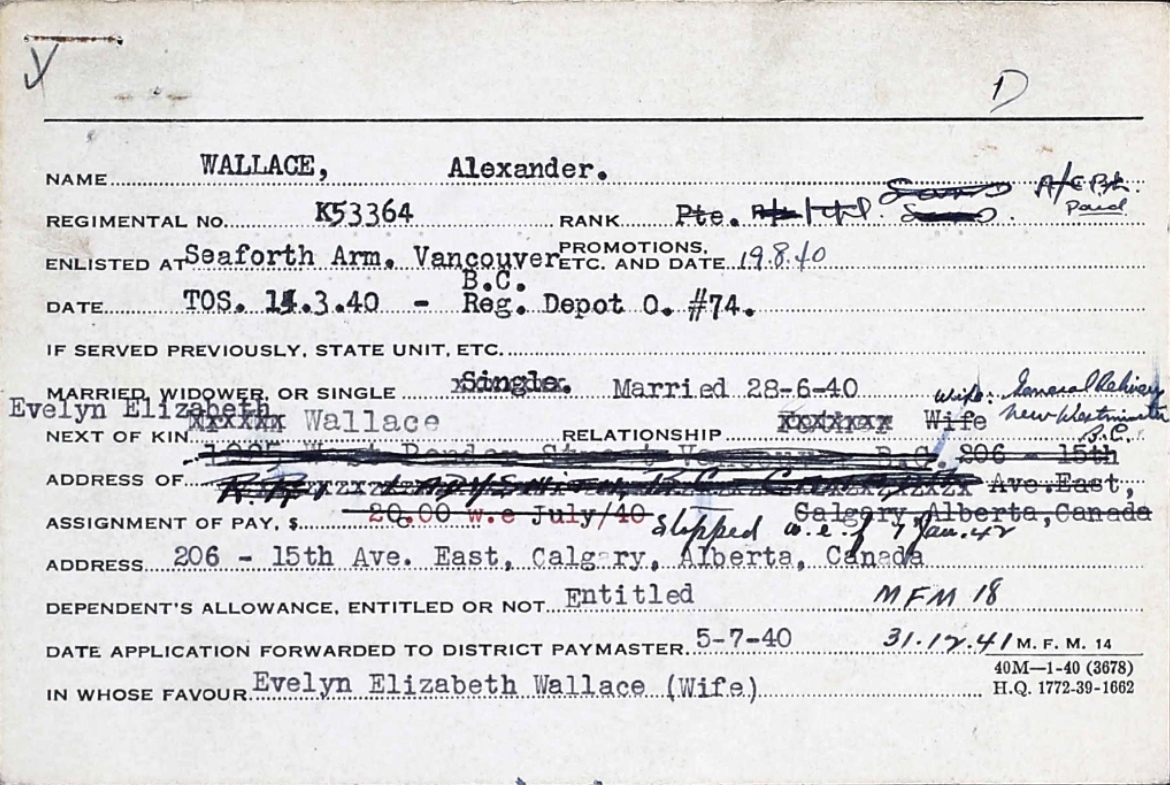 NAME WALLACE, Alexander.
REGIMENTAL NO. K53364 RANK Pte. A/C Ptd. Paid
ENLISTED AT Seaforth Arm. Vancouver B.C. PROMOTIONS, ETC. AND DATE 19.8.40
DATE TOS. 14.3.40 - Reg. Depot O. #74.
IF SERVED PREVIOUSLY, STATE UNIT, ETC.
MARRIED, WIDOWER, OR SINGLE Single. Married 28-6-40
wife: General Delivery
New Westminster
B.C.
NEXT OF KIN Evelyn Elizabeth Wallace RELATIONSHIP Wife
ADDRESS OF West Pender Street, Vancouver B.C. 206 - 15th
Ave. East,
Calgary, Alberta, Canada
ASSIGNMENT OF PAY, $ 20.00 w.e July/40 Stopped w.e.f 1 Jan. 42
ADDRESS 206 - 15th Ave. East, Calgary, Alberta, Canada
DEPENDENT'S ALLOWANCE, ENTITLED OR NOT Entitled MFM 18
DATE APPLICATION FORWARDED TO DISTRICT PAYMASTER 5-7-40 31.12.41
IN WHOSE FAVOUR Evelyn Elizabeth Wallace (Wife)
M. F. M. 14
40M—1-40 (3678)
H.Q. 1772-39-1662